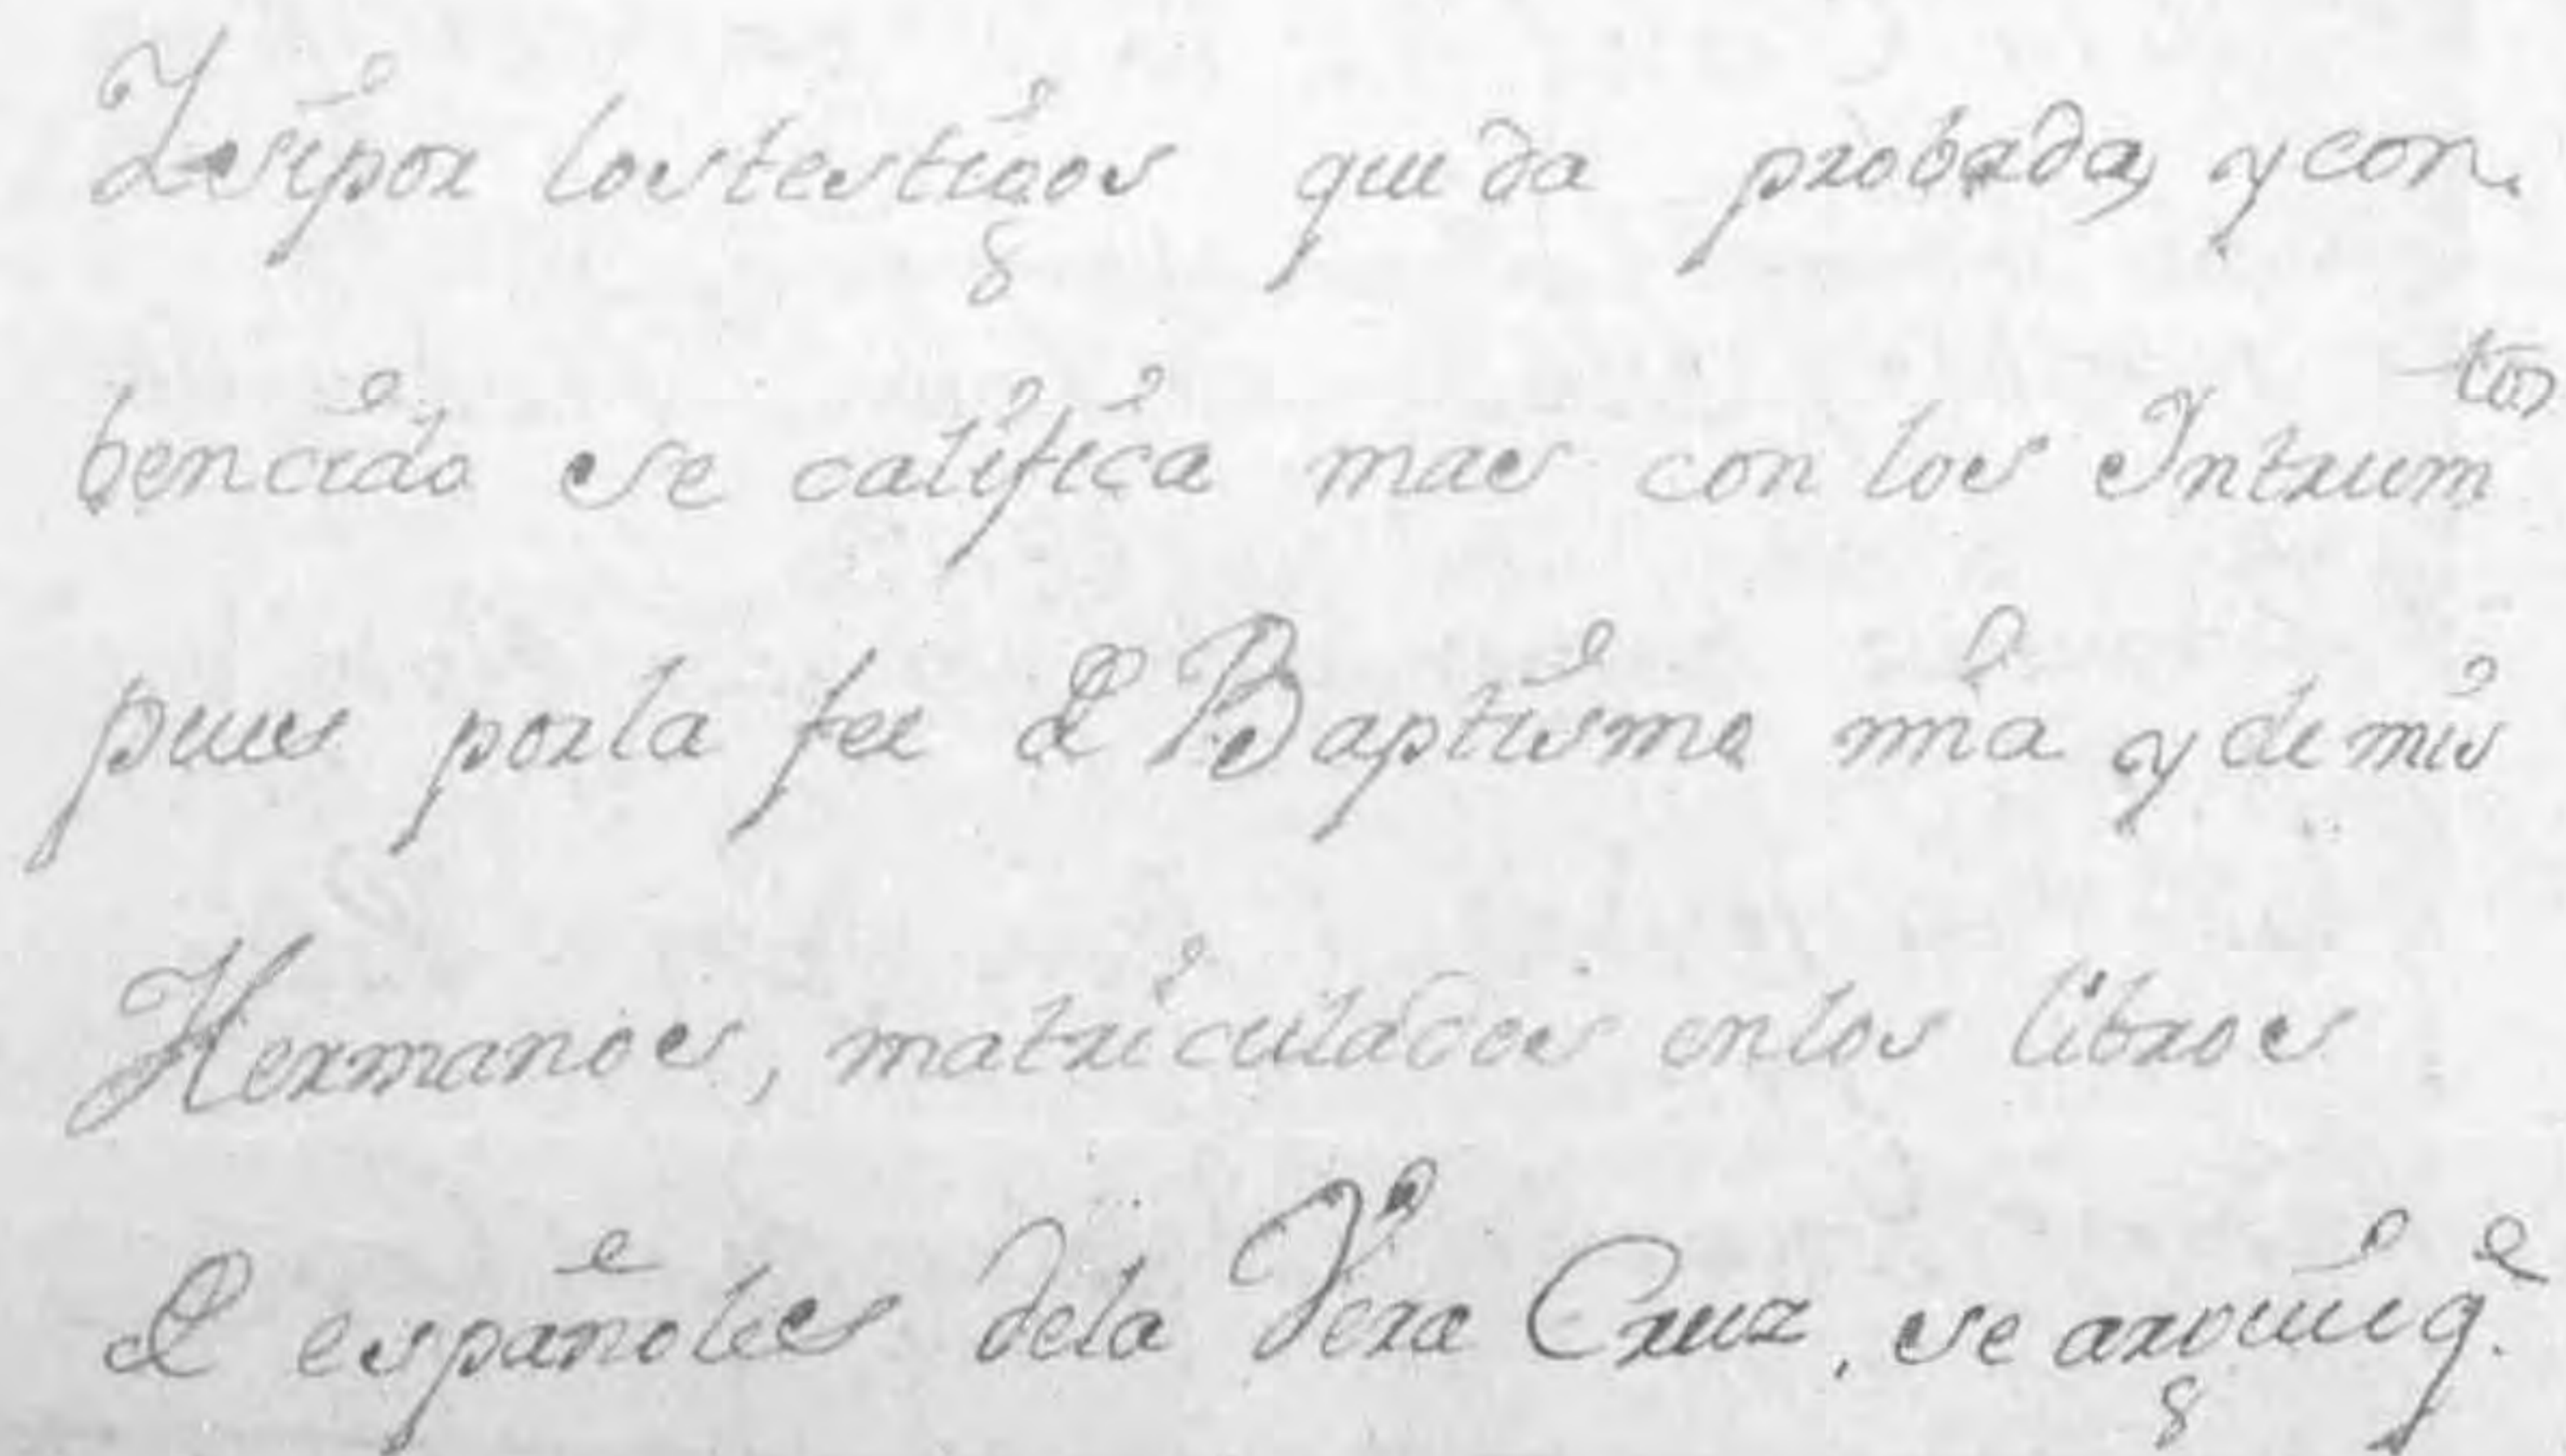 Y si por los testigos queda probada, y con-
bencida se califica mas con los Intrum.tos
pues por la fee de Baptismo mia y de mis
Hermanos, matriculados en los libros
de españoles de la Vera Cruz, se arguie q.e